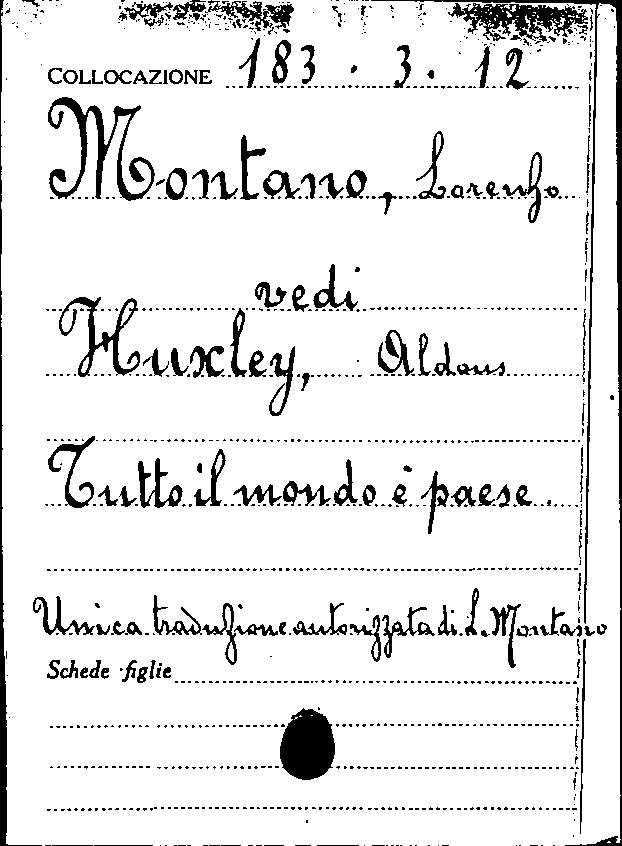 COLLOCAZIONE 183 . 3 . 12
Montano, Lorenzo
vedi
Huxley, Aldous
Tutto il mondo è paese.
Unica traduzione autorizzata di L. Montano
Schede figlie